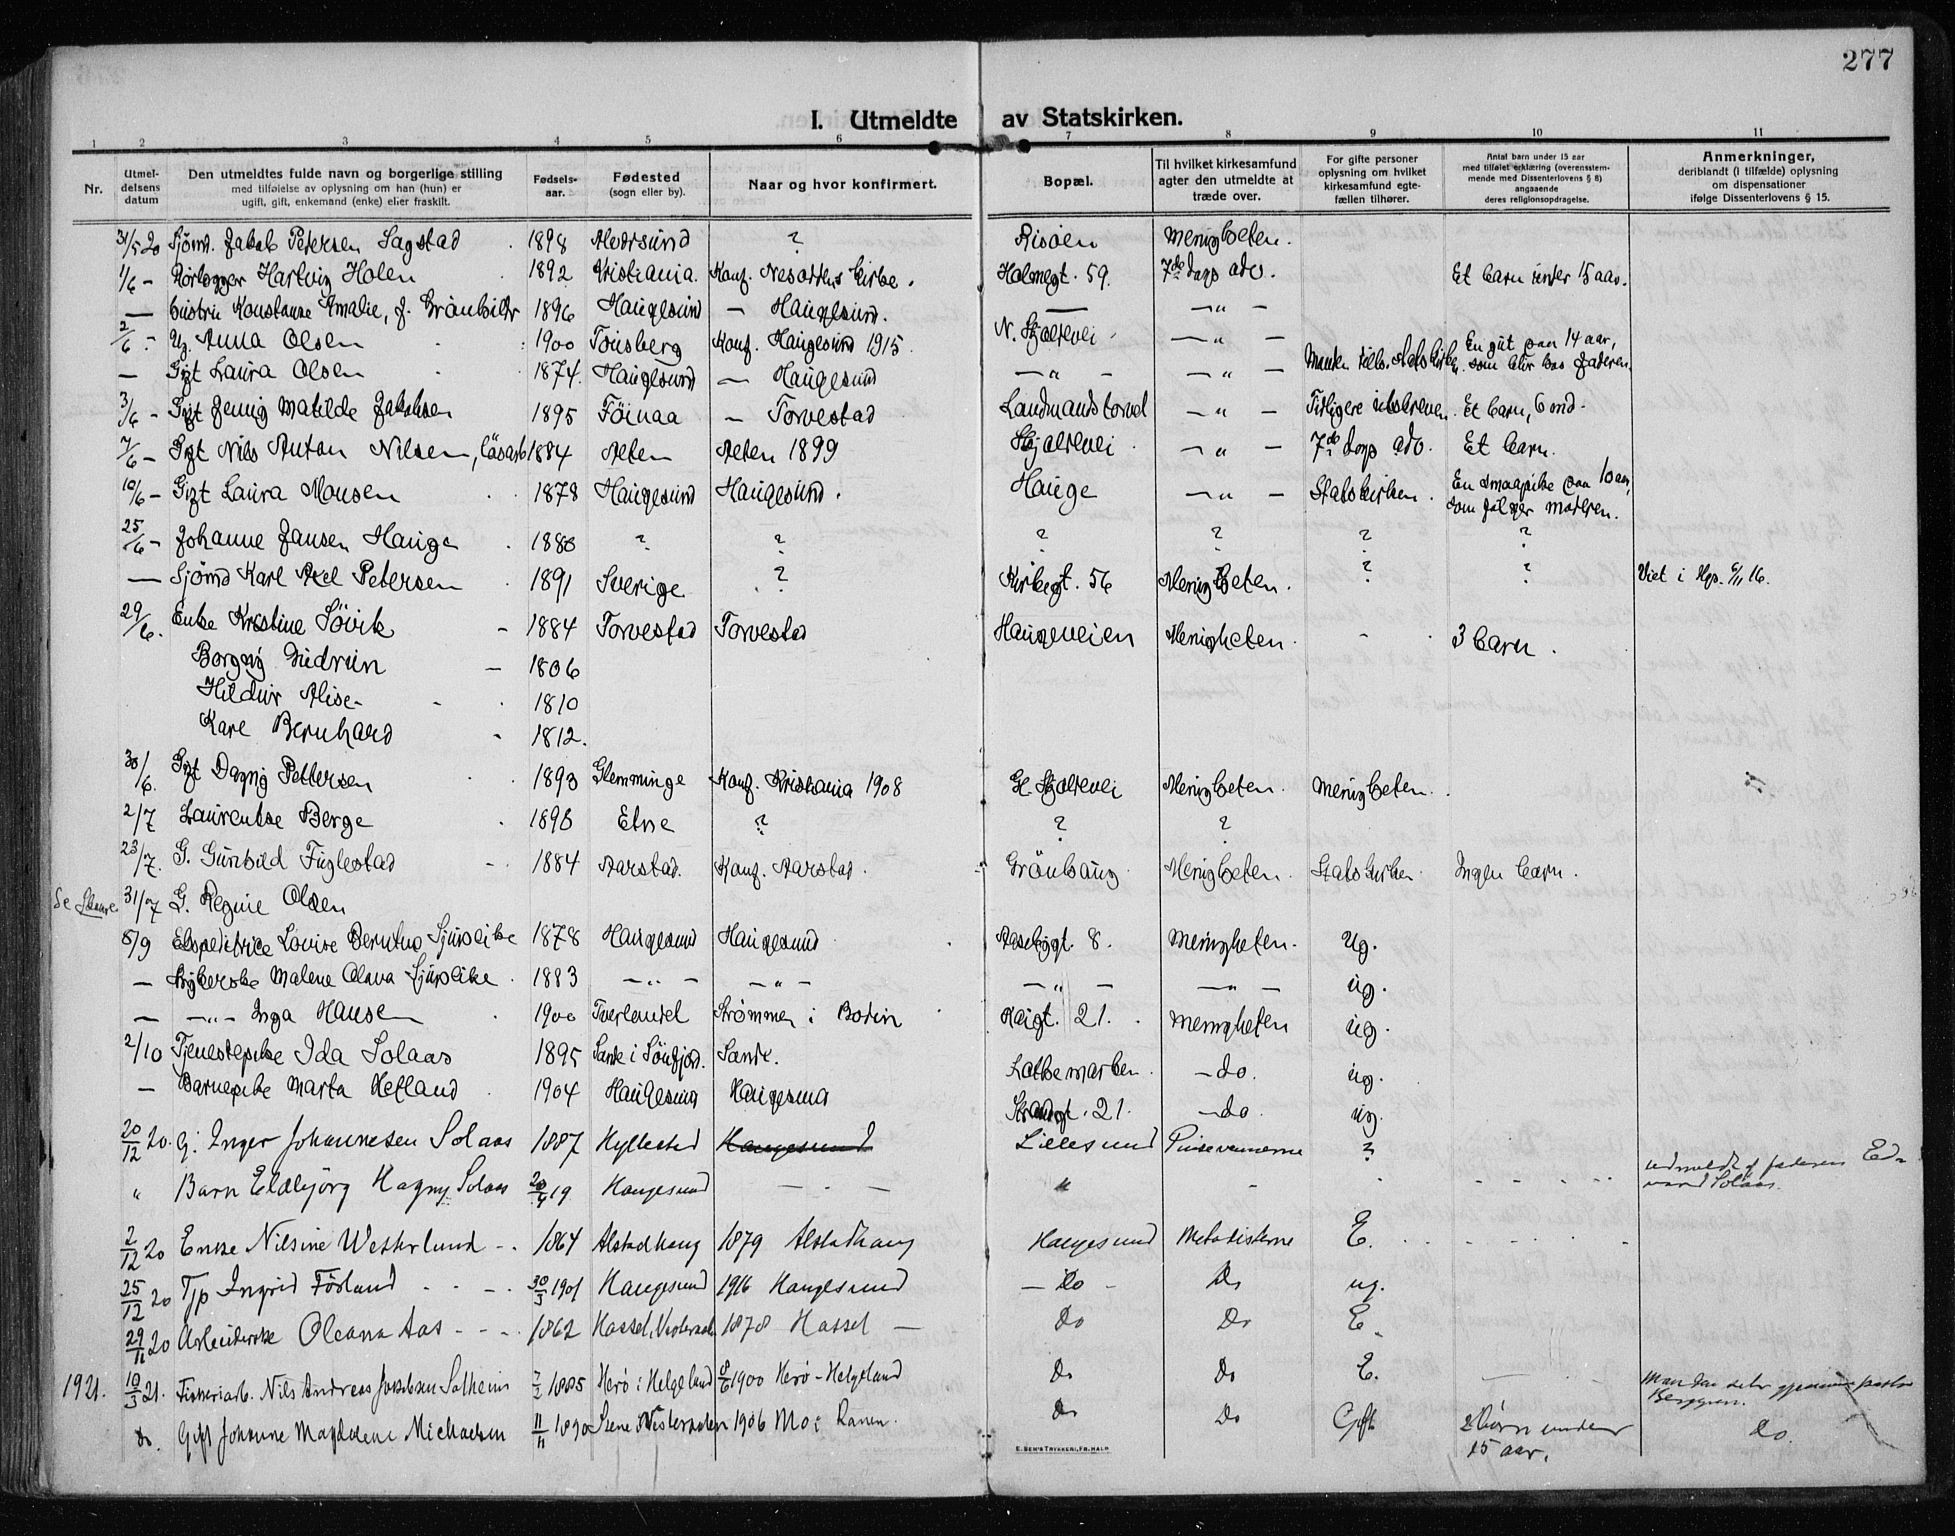 277
I. Utmeldte av Statskirken.
1 2 3 4 5 6 7 8 9 10 11
Nr.
Utmel-
delsens
datum
Den utmeldtes fulde navn og borgerlige stilling
med tilføielse av oplysning om han (hun) er
ugift, gift, enkemand (enke) eller fraskilt.
Fødsels-
aar.
Fødested
(sogn eller by).
Naar og hvor konfirmert.
Bopæl.
Til hvilket kirkesamfund
agter den utmeldte at
træde over.
For gifte personer
oplysning om hvilket
kirkesamfund egte-
fællen tilhører.
Antal barn under 15 aar
med tilføiet erklæring (overensstem-
mende med Dissenterlovens § 8)
angaaende
deres religionsopdragelse.
Anmerkninger,
deriblandt (i tilfælde) oplysning
om dispensationer
ifølge Dissenterlovens § 15.
31/5 20 Sjømd. Jakob Petersen Sagstad 1898 Alversund ? Risøen Menigheten.
1/6 – Rørlægger Hartvig Holen 1892 Kristiania. Konf. Nesoddens kirke. Holmegt. 59. 7de dags adv. Et barn under 15 aar.
— Hustru Konstanse Amalie, f. 1896 Haugesund – Haugesund. — – " –
2/6 – Ug. Anna Olsen 1900 Tønsberg Konf. Haugesund 1915. N. Skjoldevei – " –
— Gift Laura Olsen 1874. Haugesund — Haugesund – " – – " – Manden tilh. Statskirken. En gut paa 14 aar,
som blir hos faderen.
3/6 – Gift Jenny Matilde Jakobsen 1895 Föinaa – Torvestad Landmandstorvet – " – Tidligere utskreven. Et barn, 6 md.
7/6 – Gift Nils Anton Nilsen, løsarb 1884 Aeten Aeten 1899 Skjoldevei – " – 7de dags adv. Et barn.
10/6 – Gift Laura Monsen 1878 Haugesund Haugesund. Hauge – " – Statskirken. En smaapike paa 10 aar,
som følger moderen.
25/6 – Johanne Jansen Hauge 1880 ? ? ? ? ? ?
— Sjømd Karl Axel Petersen 1891 Sverige ? Kirkegt. 56 Menigheten. ? ? Viet i Hgs. 6/11 16.
29/6. Enke Kristine Søvik – 1884 Torvestad Torvestad Haugeveien Menigheten. - 3 barn.
Borgny Gudrun – 1806
Hildur Alise – 1810
Karl Bernhard - 1812.
30/6. Gift Dagny Pettersen 1893 Glemminge Konf. Kristiania 1908 Gl. Skjoldevei Menigheten. Menigheten.
2/7 Laurentse Berge 1896 Etne ? ? ?
23/7. G. Gunhild Fuglestad 1884 Aarstad. Konf. Aarstad. Grønhaug Menigheten. Statskirken Ingen barn.
Se 31/7 G. Regine Olsen
8/9 Ekspeditrice Lovise Berntine 1878 Haugesund Haugesund Aasebygt. 8. Menigheten. Ug.
— Strykerske Malene Olava 1883 – " – – " – – " – – " – ug.
— – " – Inga Hansen 1900 Tverlandet Strømmen i Bodin Kaigt. 21. Menigheten ug.
2/10 Tjenestepike Ida Solaas 1895 Sande i Søndfjord. Sande. Lothemarken – do. ug.
— Barnepike Marta Hetland 1904 Haugesund Haugesund Strandgt. 21. – do. ug.
20/12 20. G: Inger Johannesen Solaas 1887 Hyllestad Haugesund Lillesund Pinsevennerne ?
" Barn Eldbjörg Hagny Solaas 20/4 19 Haugesund – - – " – udmeldt af faderen Ed-
vard Solaas.
2/12 20 Enke Nilsine Westerlund 1864 Alstadhaug 1879 Alstadhaug Haugesund Metodisterne E.
25/12 20 Tjp Ingrid Førland 30/3 1901 Haugesund 1916 Haugesund – Do – Do ug.
29/11 20 Arbeiderske Oleana Aas 1862 Hassel, Vesteraalen 1878 Hassel – Do Do E.
1921. 10/3 21. Fiskeriarb. Nils Andreas Jakobsen Solheim 7/2 1885 Herø i Helgeland 8/6 1900 Herø – Helgeland Do Do E. – Man har selv pastor
Berggren.
do. Gift Johanne Magdalene Michaelsen 11/11 1890 i Vesteraalen 1906 Mo i Ranen. Do Do Gift 2 börn under
15 aar. do.
E. SEM'S TRYKKERI, FR.HALD